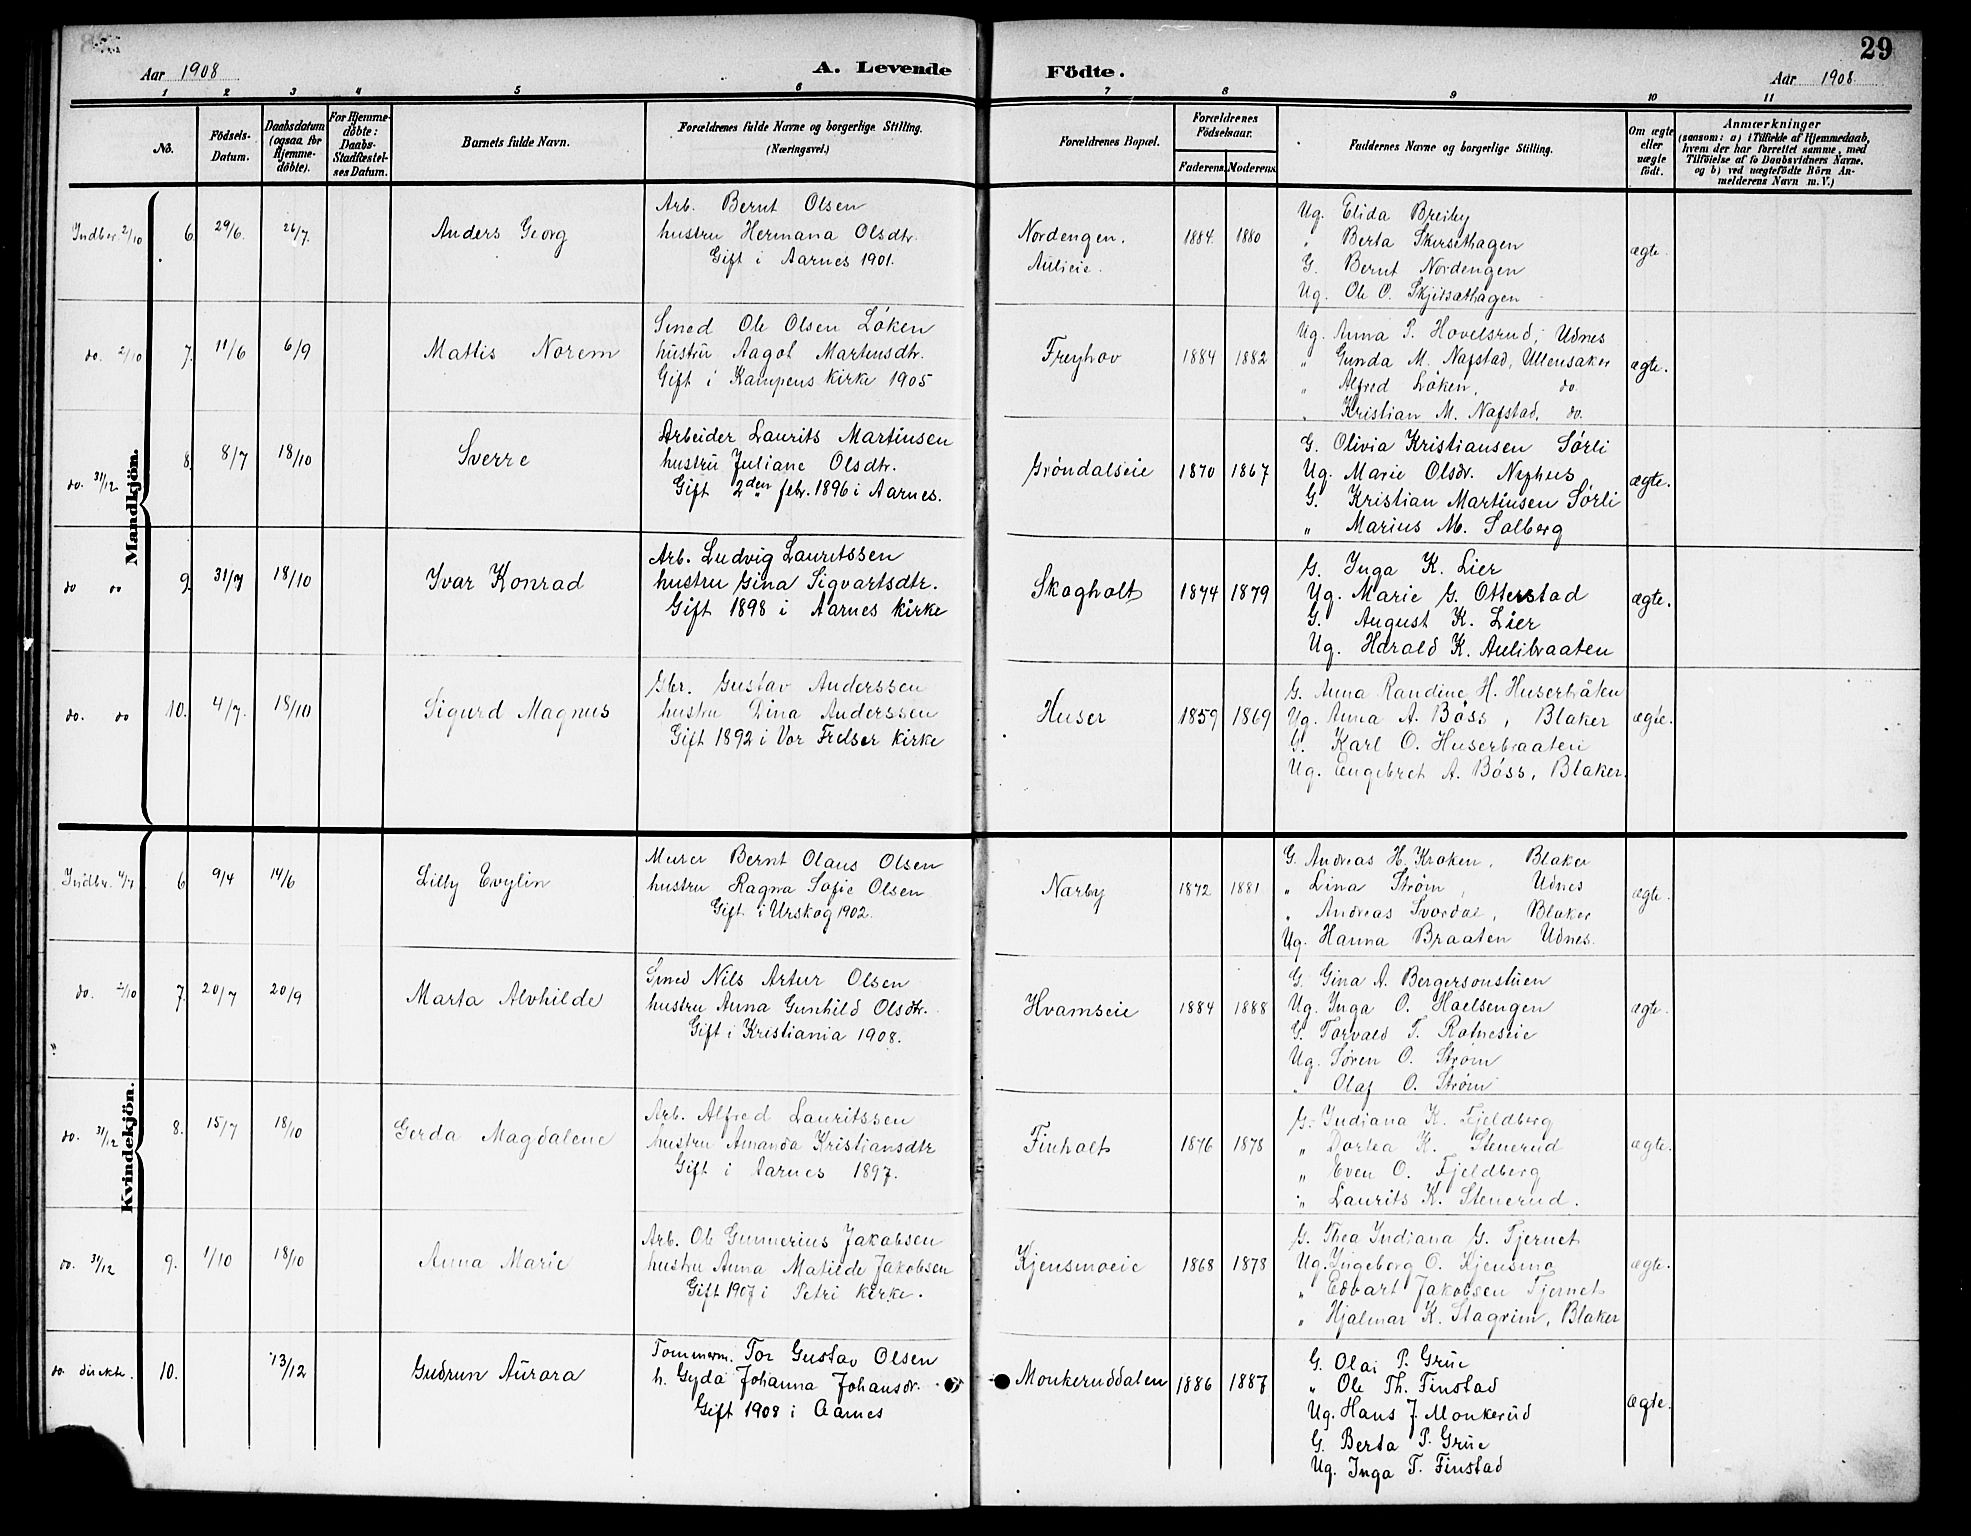 29
Aar 1908
A. Levende Födte.
Aar 1908.
1 2 3 4 5 6 7 8 9 10 11
No.
Födsels-Datum.
Daabsdatum (ogsaa for Hjemme-döbte).
For Hjemme-döbte: Daabs-Stadfæstel-ses Datum.
Barnets fulde Navn.
Forældrenes fulde Navne og borgerlige Stilling.
(Næringsvei.)
Forældrenes Bopæl.
Forældrenes Födselsaar.
Faderens. Moderens.
Faddernes Navne og borgerlige Stilling.
Om ægte eller uægte födt.
Anmærkninger
(saasom: a) i Tilfælde af Hjemmedaab,
hvem der har forrettet samme, med
Tilföielse af to Daabsvidners Navne.
og b) ved uægtefödte Börn An-
melderens Navn m. V.)
Mandkjön.
Indber 2/10 6. 29/6. 26/7. Anders Georg
Arb. Bernt Olsen
hustru Hermana Olsdtr.
Gift i Aarnes 1901.
Nordengen.
Aulieie.
1884. 1880
Ug. Elida Breiby
" Berta Skersethagen
G. Bernt Nordengen
Ug. Ole O. Skjitsæthagen
ægte.
do. 2/10 7. 11/6 6/9 Mattis Norem
Smed Ole Olsen Løken
hustru Aagot Martinsdtr.
Gift i Kampens kirke 1905
Freyhov 1884 1882
Ug. Anna P. Hovelsrud, Udnes
" Gunda M. Nafstad, Ullensaker
" Alfred Løken, do.
" Kristian M. Nafstad, do.
ægte.
do. 31/12 8. 8/7 18/10 Sverre
Arbeider Laurits Martinsen
hustru Juliane Olsdtr.
Gift 2den febr. 1896 i Aarnes.
Grøndalseie 1870 1867
G. Olivia Kristiansen Sørli
Ug. Marie Olsdr. Nyhus
G. Kristian Martinsen Sørli
" Marius M. Solberg
ægte.
do do 9. 31/7 18/10 Ivar Konrad
Arb. Ludvig Lauritssen
hustru Gina Sigvartsdtr.
Gift 1898 i Aarnes kirke
Skogholt 1874 1879
G. Inga K. Lier
Ug. Marie G. Otterstad
G. August K. Lier
Ug. Harald K. Aulibraaten
ægte.
do. do 10. 4/7. 18/10 Sigurd Magnus
Gbr. Gustav Anderssen
hustru Dina Anderssen
Gift 1892 i Vor Frelser kirke
Huser 1859 1869
G. Anna Randine H. Huserbråten
Ug. Anna A. Bøss, Blaker
G. Karl O. Huserbraaten
Ug. Engebret A. Bøss, Blaker.
ægte.
Kvindekjön.
Indber. 4/7 6 9/4 14/6 Lilly Evylin
Murer Bernt Olaus Olsen
hustru Ragna Sofie Olsen
Gift i Urskog 1902.
Narby 1872 1881
G. Andreas H. Kroken, Blaker
" Lina Strøm, Udnes
" Andreas Svordal, Blaker
Ug. Hanna Braaten Udnes.
ægte.
do. 2/10 7. 20/7 20/9 Marta Alvhilde
Smed Nils Artur Olsen
hustru Anna Gunhild Olsdtr.
Gift i Kristiania 1908.
Hvamseie 1884 1888
G. Gina A. Bergersonstuen
Ug. Inga O. Haelsengen
G. Torvald T. Rotneseie
Ug. Søren O. Strøm
" Olaf O. Strøm
ægte.
do. 31/12 8. 15/7 18/10 Gerda Magdalene
Arb. Alfred Lauritssen
hustru Amanda Kristiansdtr
Gift i Aarnes 1897.
Finholt 1876 1878
G. Indiana K. Fjeldberg
" Dortea K. Stenerud
" Even O. Fjeldberg
" Laurits K. Stenerud.
ægte.
do. 31/12 9. 1/10 18/10 Anna Marie
Arb. Ole Gunnerius Jakobsen
hustru Anna Matilde Jakobsen
Gift 1907 i Petri kirke.
Kjensmoeie 1868 1878
G. Thea Indiana G. Tjernet
Ug. Ingeborg O. Kjensmo
" Edvart Jakobsen Tjernet
" Hjalmar K. Stagrim, Blaker
ægte.
do. direkte. 10. 13/12 Gudrun Aurora
Tømmerm. Tor Gustav Olsen
h. Gyda Johanna Johansdr.
Gift 1908 i Aarnes
Monkeruddalen 1886 1887
G. Olai P. Grue
" Ole Th. Finstad
Ug. Hans J. Monkerud
G. Berta P. Grue
Ug. Inga T. Finstad
ægte.